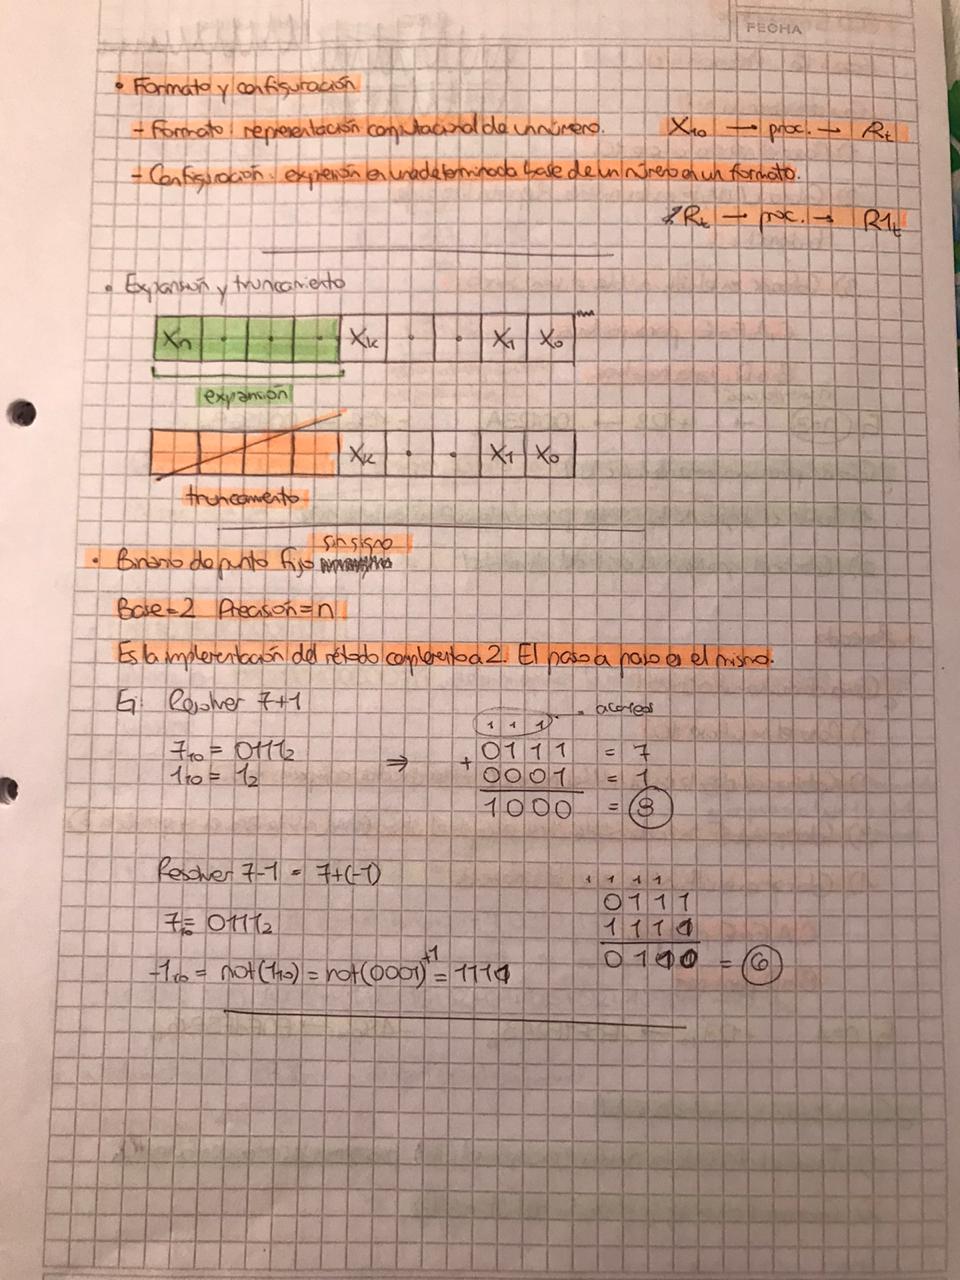 FECHA
• Formato y configuración
- Formato: representación computacional de un número. X₁₀ → proc. → Rₜ
- Configuración: expresión en una determinada base de un número en un formato.
Rₜ → proc. → R1ₜ
• Expansión y truncamiento
Xn · · · Xk · · X1 X0
expansión
Xk · · X1 X0
truncamento
sin signo
• Binario de punto fijo
Base=2 Precisión=n
Es la implementación del método complemento a 2. El paso a paso es el mismo.
Ej: Resolver 7+1
1 1 1 acarreos
7₁₀ = 0111₂ ⇒ + 0111 = 7
1₁₀ = 1₂ 0001 = 1
1000 = 8
Resolver 7-1 = 7+(-1)
1 1 1 1
0111
7₁₀= 0111₂ 1111
-1₁₀ = not(1₁₀) = not(0001)⁺¹ = 1111
0110 = 6